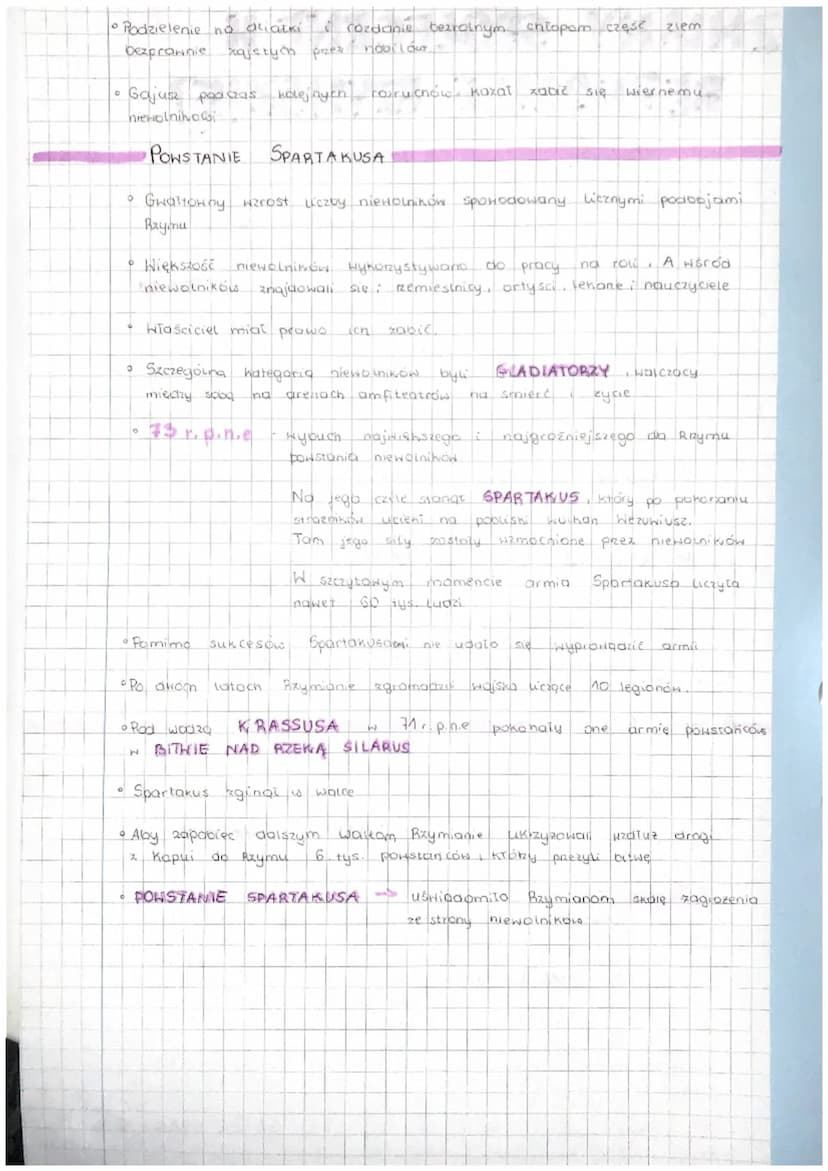 • Podzielenie na działki i rozdanie bezrolnym chłopom część ziem
bezprawnie zajętych przez nobilów.
• Gajusz podczas kolejnych rozruchów kazał zabić się wiernemu
niewolnikowi
POWSTANIE SPARTAKUSA
• Gwałtowny wzrost liczby niewolników spowodowany licznymi podbojami
Rzymu
• Większość niewolników wykorzystywano do pracy na roli. A wśród
niewolników znajdowali się: rzemieślnicy, artyści, lekarze i nauczyciele
• Właściciel miał prawo ich zabić.
• Szczególną kategorią niewolników byli GLADIATORZY, walczący
między sobą na arenach amfiteatrów na śmierć i życie
• 73 r. p.n.e - wybuch największego i najgroźniejszego dla Rzymu
powstania niewolników
Na jego czele stanął SPARTAKUS, który po pokonaniu
strażników uciekł na pobliski wulkan Wezuwiusz.
Tam jego siły zostały wzmocnione przez niewolników
W szczytowym momencie armia Spartakusa liczyła
nawet 60 tys. ludzi
• Pomimo sukcesów Spartakusowi nie udało się wyprowadzić armii
• Po dwóch latach Rzymianie zgromadzili wojsko liczące 10 legionów.
• Pod wodzą KRASSUSA w 71 r. p.n.e pokonały one armię powstańców
w BITWIE NAD RZEKĄ SILARUS
• Spartakus zginął w walce
• Aby zapobiec dalszym walkom Rzymianie ukrzyżowali wzdłuż drogi
z Kapui do Rzymu 6 tys. powstańców, którzy przeżyli bitwę
• POWSTANIE SPARTAKUSA → uświadomiło Rzymianom skalę zagrożenia
ze strony niewolników